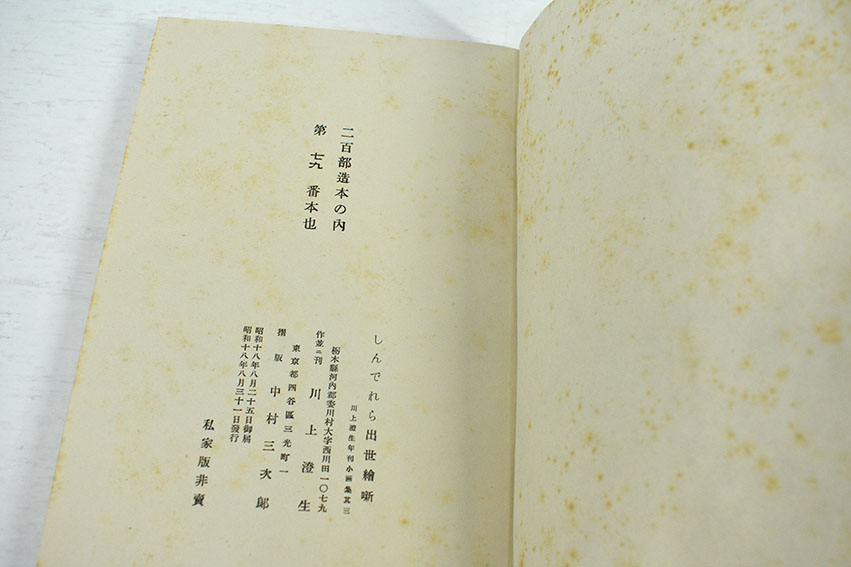 二百部造本の內
第 七九 番本也
しんでれら出世繪噺
川上澄生年刊小画集其三
栃木縣河內郡姿川村大字西川田一〇七九
作並ニ刊 川上澄生
東京都四谷區三光町一
摺版 中村三次郞
昭和十八年八月二十五日御届
昭和十八年八月三十一日發行
私家版非賣